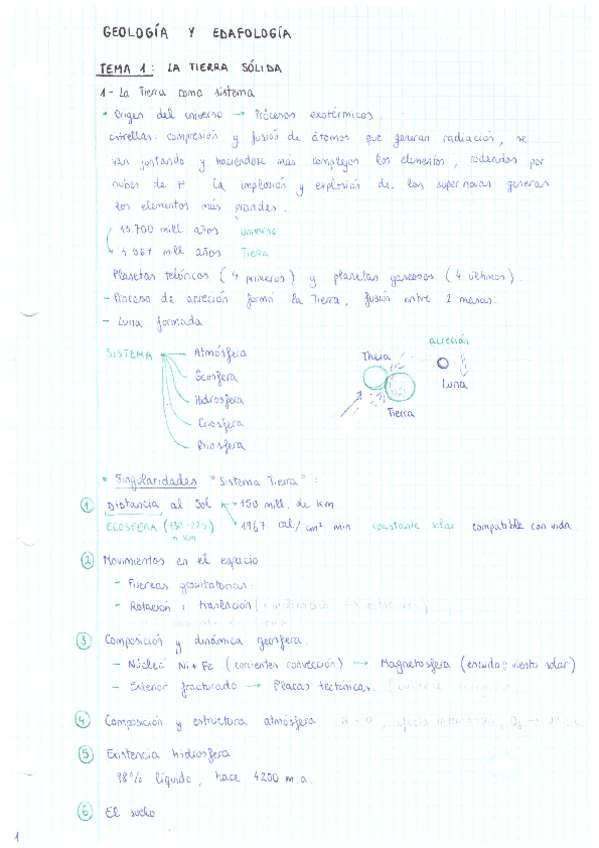 GEOLOGÍA Y EDAFOLOGÍA
TEMA 1: LA TIERRA SÓLIDA
1- La Tierra como sistema
• Origen del universo → Procesos exotérmicos.
estrellas: compresión y fusión de átomos que generan radiación, se
van juntando y haciéndose más complejos los elementos, rodeados por
nubes de H. La implosión y explosión de las supernovas generan
los elementos más grandes.
13.700 mill. años Universo
4.567 mill. años Tierra
Planetas telúricos (4 primeros) y planetas gaseosos (4 últimos).
- Proceso de acreción formó la Tierra, fusión entre 2 masas.
- Luna formada
SISTEMA
Atmósfera
Geosfera
Hidrosfera
Criosfera
Biosfera
acreción
Theia
Luna
Tierra
• Singularidades "Sistema Tierra":
① Distancia al Sol → 150 mill. de km
ECOSFERA (130-225 m.km) 1967 cal/cm² min constante solar compatible con vida.
② Movimientos en el espacio
- Fuerzas gravitatorias.
- Rotación y traslación
③ Composición y dinámica geosfera.
- Núcleo Ni+Fe (corrientes convección) → Magnetosfera (escudo viento solar)
- Exterior fracturado → Placas tectónicas.
④ Composición y estructura atmósfera
⑤ Existencia hidrosfera
98% líquido, hace 4200 m.a.
⑥ El suelo
1